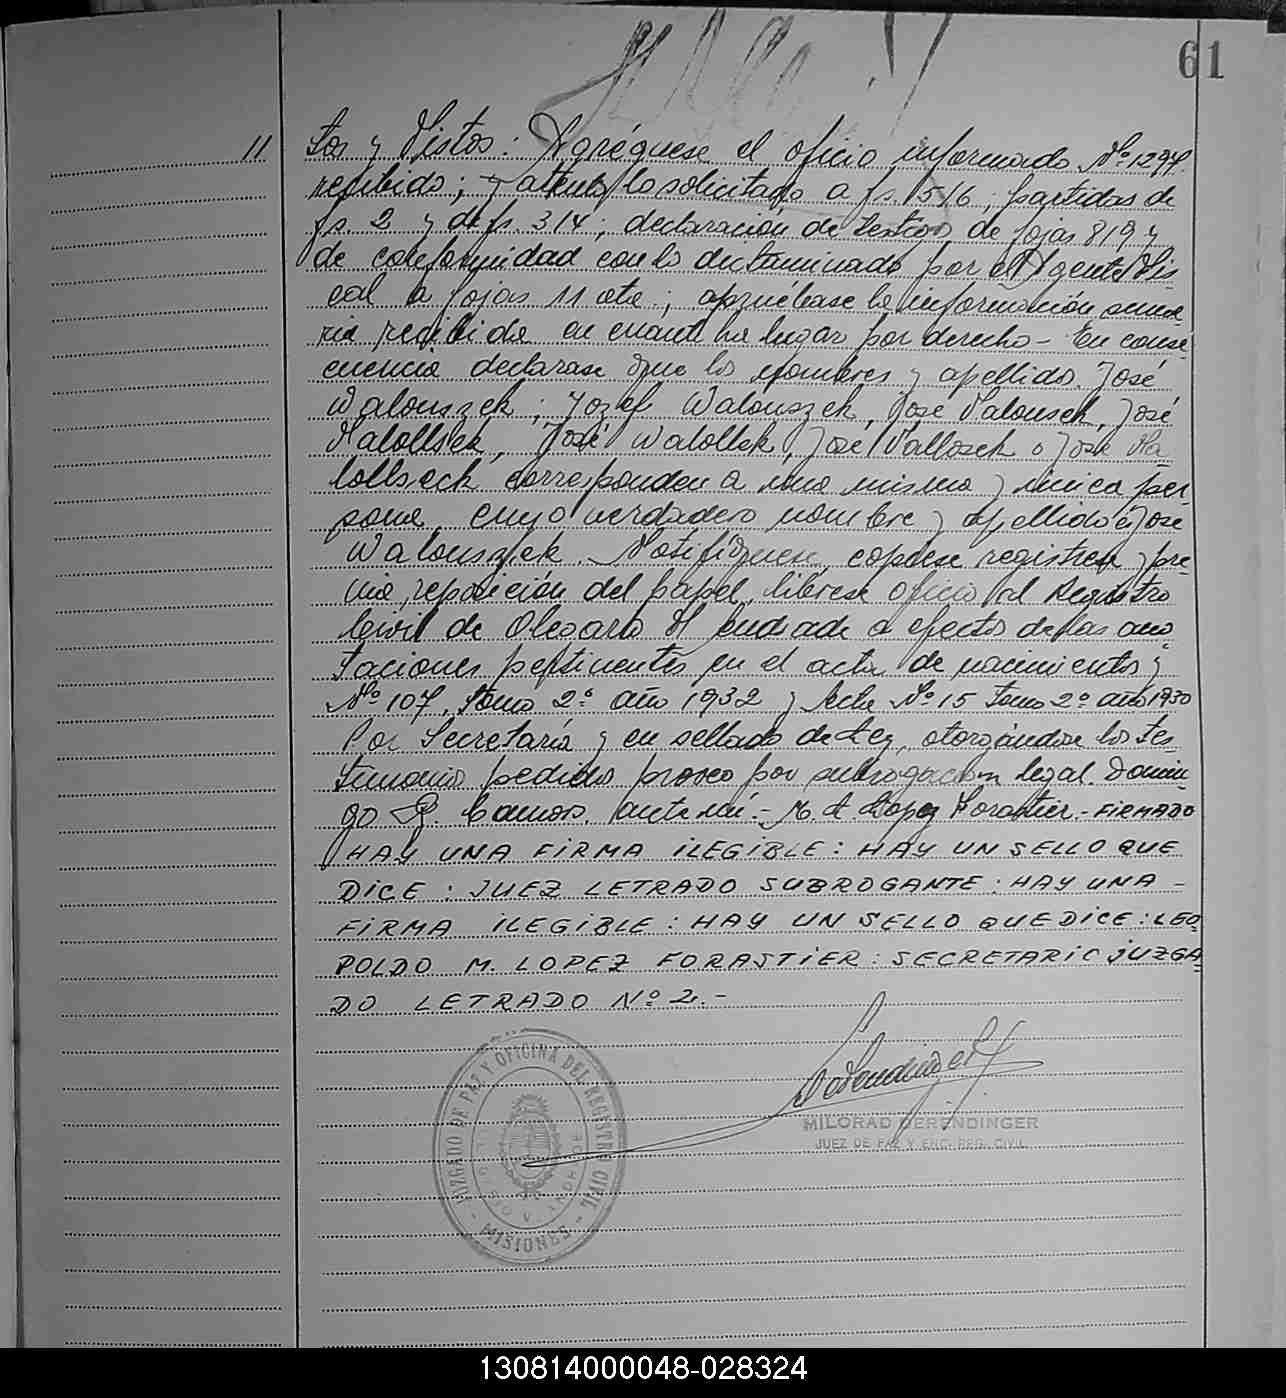 61
11
tos y Vistos: Agréguese el oficio informado Nº 1294
recibido; y atento lo solicitado a fs. 5/6; partidas de
fs 2 y de fs. 3/4; declaración de testigos de fojas 8/9 y
de conformidad con lo dictaminado por el Agente Fis
cal a fojas 11 vta; apruébase la información suma
ria recibida en cuanto ha lugar por derecho - En conse
cuencia declarase que los nombres y apellido José
Walouszek; Jozef Walouszek, José Valousek, José
Valollsek, José Walollek, José Vallosek o José Va
lollseck corresponden a una misma y única per
sona, cuyo verdadero nombre y apellido es José
Walouszek. Notifíquese, copiese registrese y pre
via, reposición del papel, librese oficio al Registro
Civil de Olegario V. Andrade a efectos de las ano
taciones pertinentes en el acta de nacimientos y
Nº 107, tomo 2º año 1932 y Acta Nº 15 tomo 2º año 1930
Por Secretaría y en sellado de Ley, otorgándose los tes
timonios pedidos proveo por subrogación legal. Domin
go Ramos. Ante mí: - M. Lopez Forastier. - FIRMADO
HAY UNA FIRMA ILEGIBLE: HAY UN SELLO QUE
DICE: JUEZ LETRADO SUBROGANTE: HAY UNA -
FIRMA ILEGIBLE: HAY UN SELLO QUE DICE: LEO
POLDO M. LOPEZ FORASTIER: SECRETARIO JUZGA
DO LETRADO Nº 2. -
JUZGADO DE PAZ Y OFICINA DEL REGISTRO CIVIL
OLEGARIO V. ANDRADE
- MISIONES -
MILORAD DERENDINGER
JUEZ DE PAZ Y ENC. REG. CIVIL
130814000048-028324